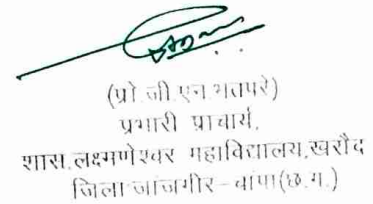 (प्रो.जी.एन.भतपरे)
प्रभारी प्राचार्य,
शास.लक्ष्मणेश्वर महाविद्यालय,खरौद
जिला-जांजगीर-चांपा(छ.ग.)